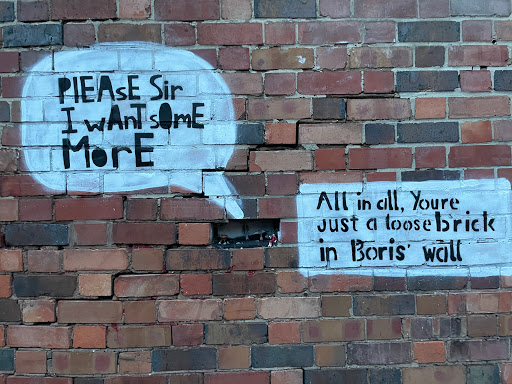 PlEAsE Sir
I wANt sOmE
MorE
All in all, Youre
Just a loose brick
in Boris' wall